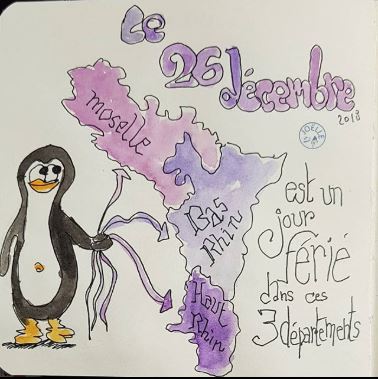 Le
26 décembre
2018
JOELLE
Moselle
Bas
Rhin
Haut
Rhin
est un
jour
férié
dans ces
3 départements